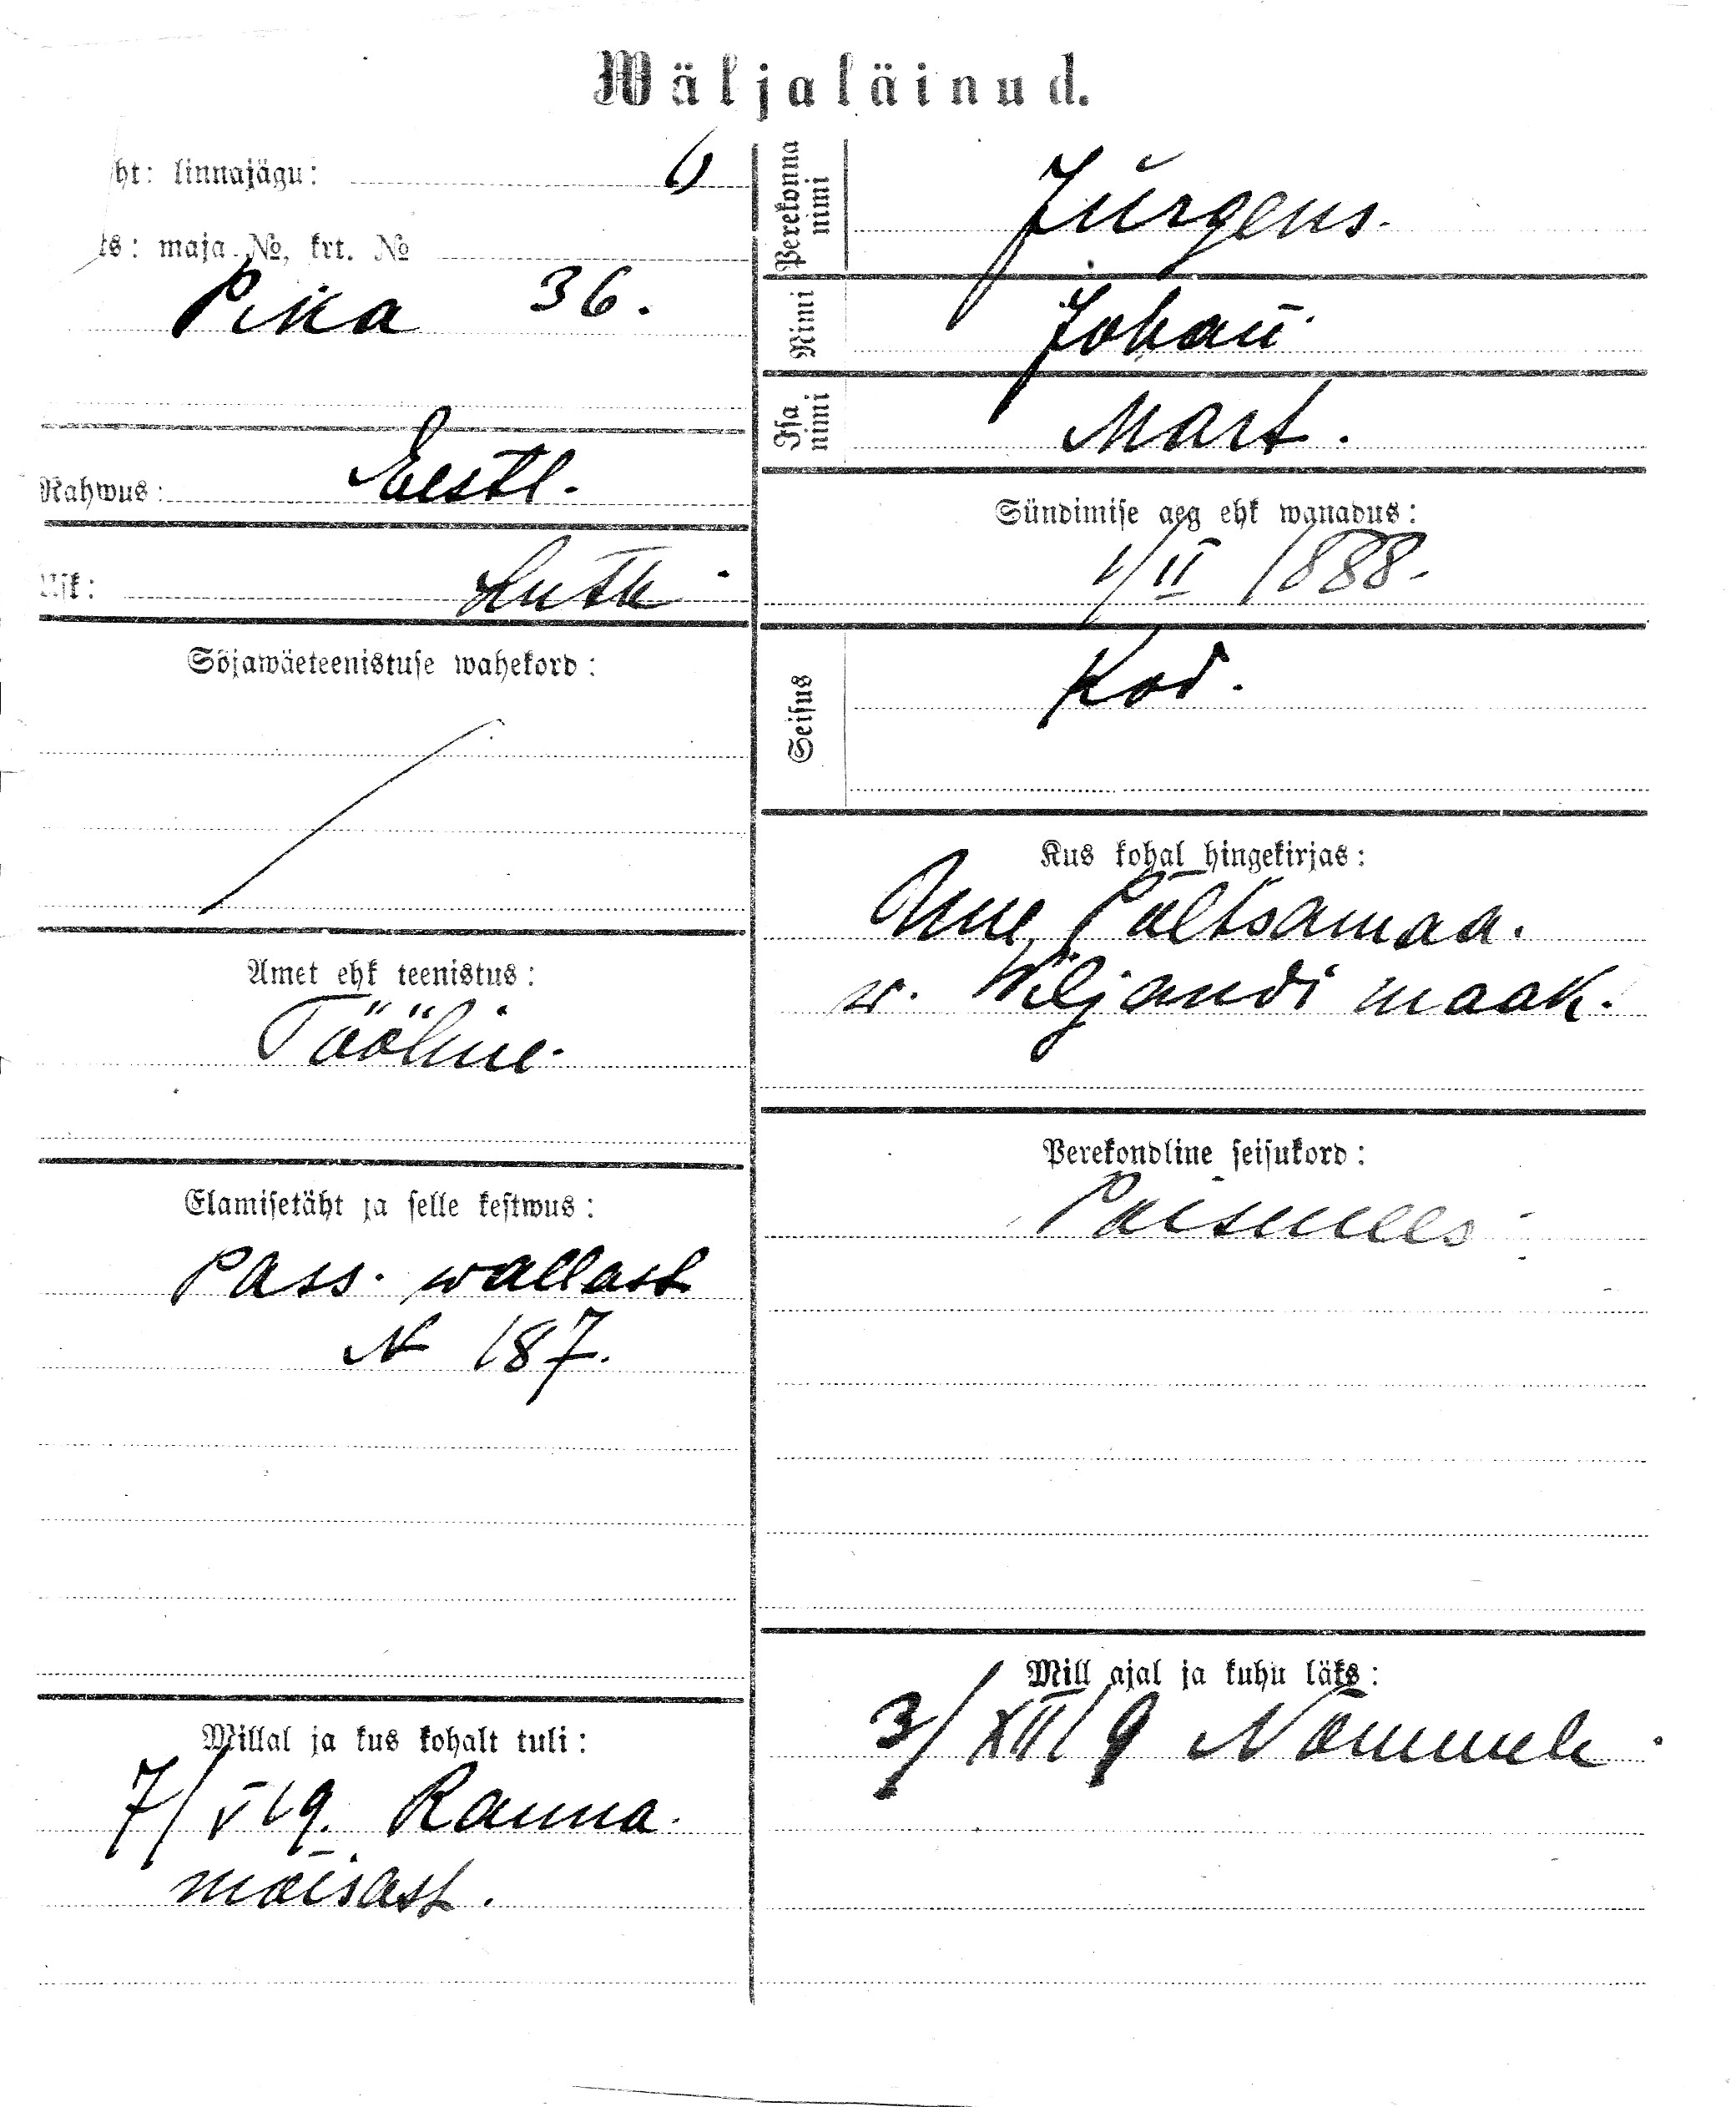 Wäljaläinud.
ht: linnajägu: 6
ts: maja No, krt. No
Pika 36.
Rahwus: Eestl.
Usk: Luth.
Sõjawäeteenistuse wahekord:
Amet ehk teenistus:
Tööline.
Elamisetäht ja selle kestwus:
Pass. wallast
N 187.
Millal ja kus kohalt tuli:
7/V 19. Ranna
mõisast.
Perekonna nimi
Jürgens.
Nimi
Johan̄
Isa nimi
Mart.
Sündimise aeg ehk wanadus:
1/II 1888.
Seisus
Kod.
Kus kohal hingekirjas:
Uue Põltsamaa.
w. Wiljandi maak.
Perekondline seisukord:
Poismees
Mill ajal ja kuhu läks:
3/XII 19 Nõmmele.